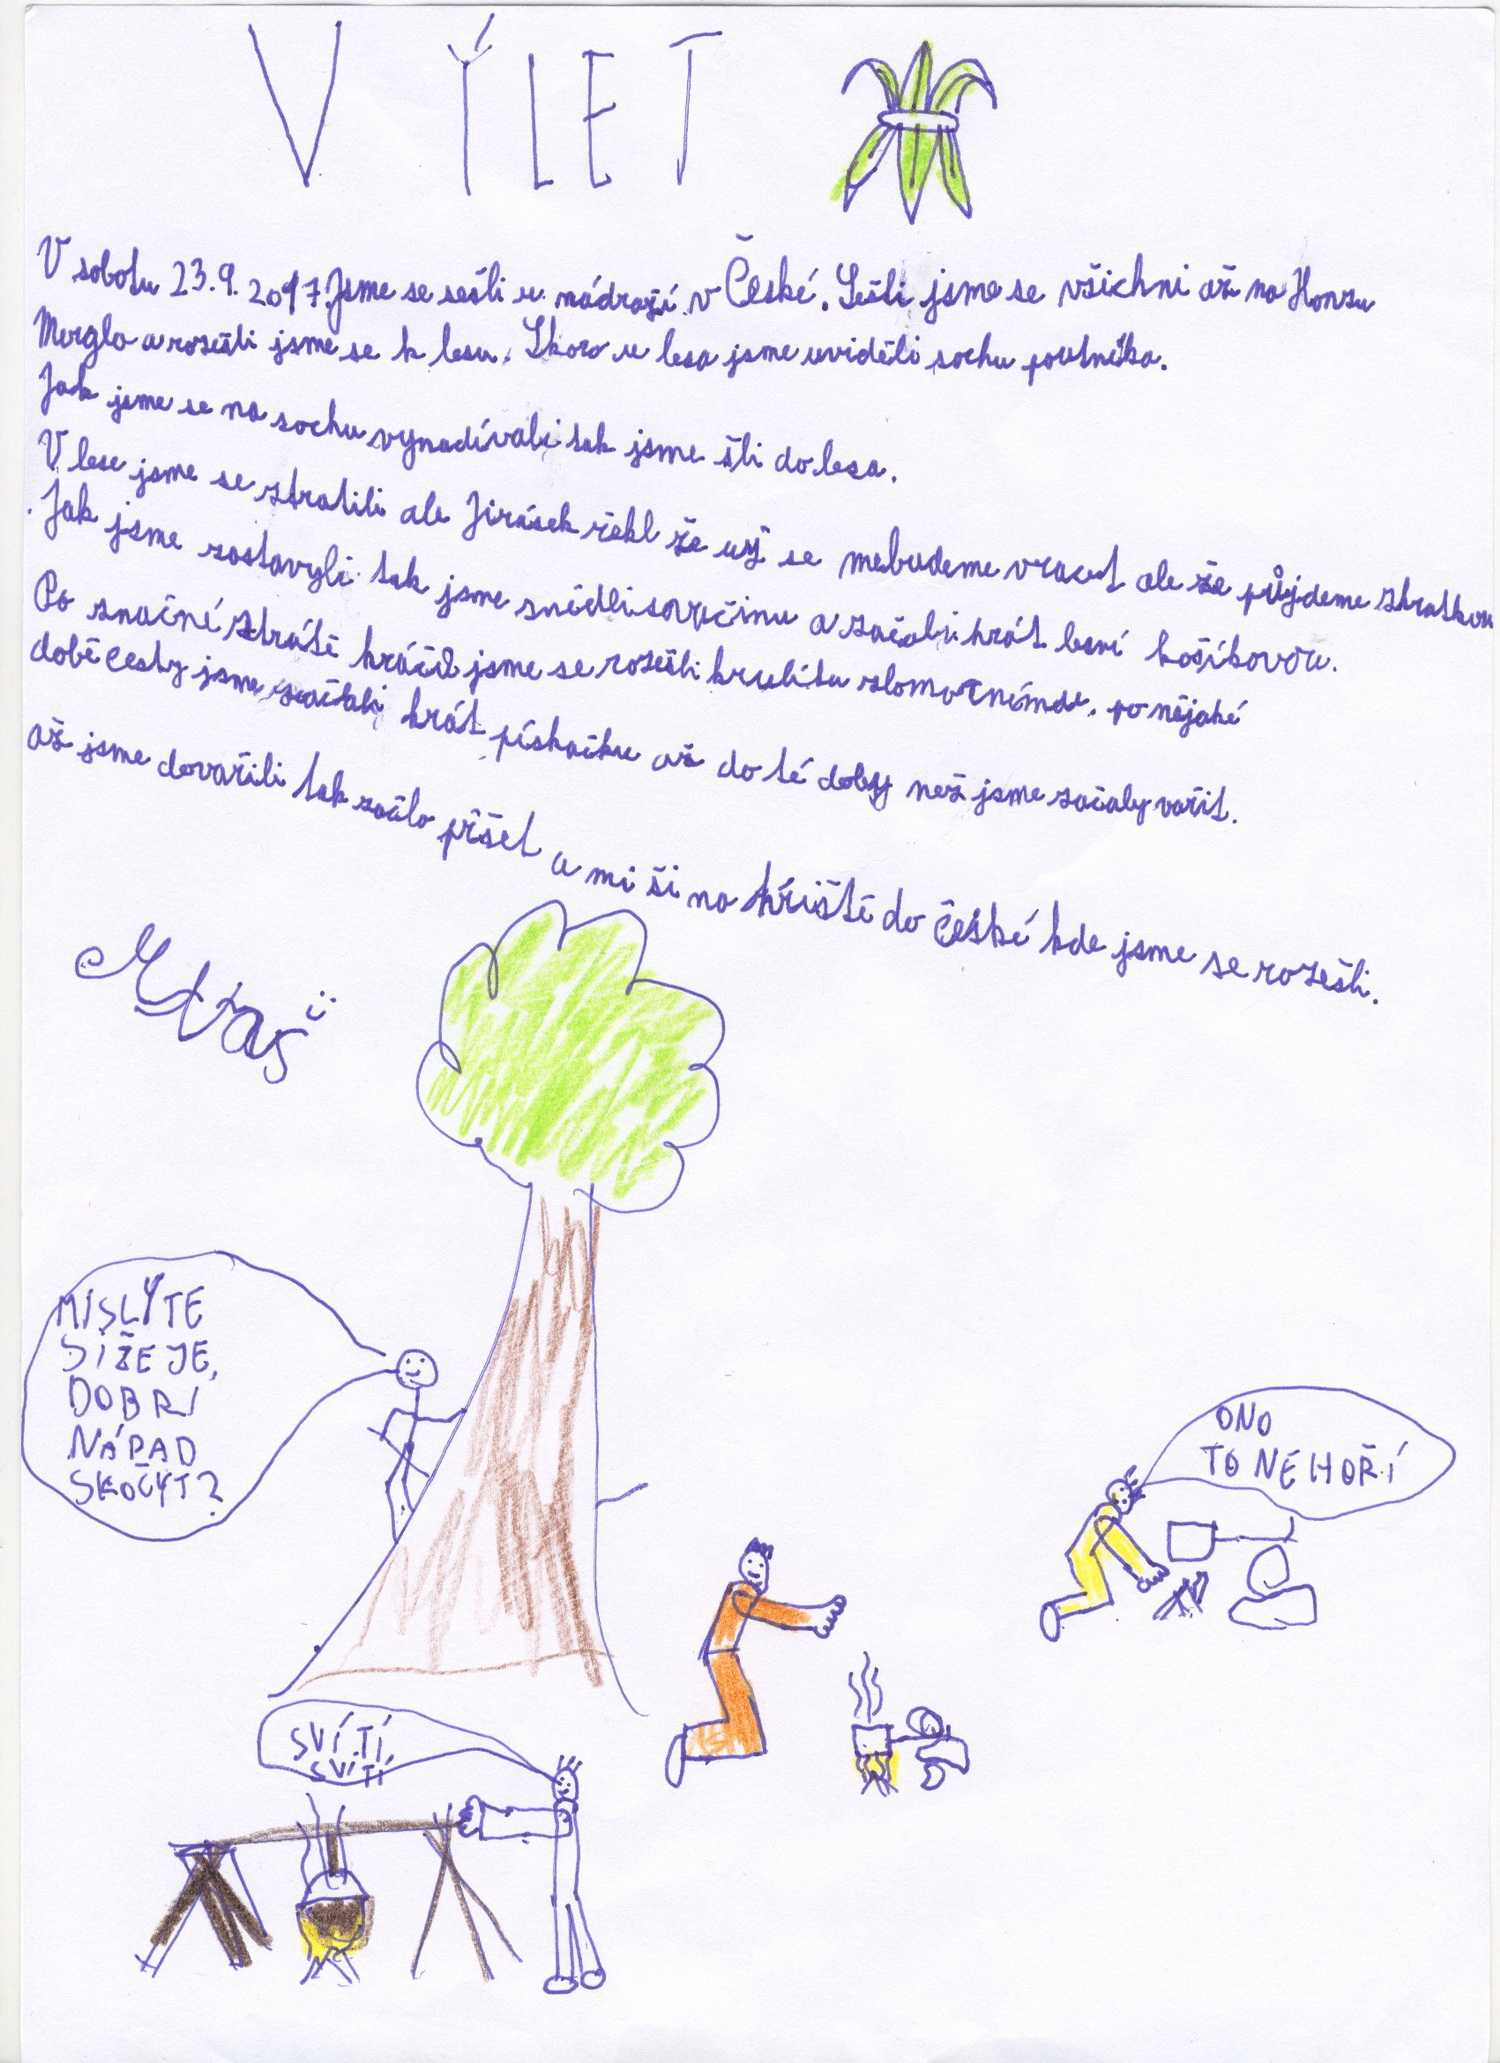 VÝLET
V sobotu 23.9.2017 Jsme se sešli u nádraží v České. Sešli jsme se všichni až na Honzu
Mergla a rozešli jsme se k lesu. Skoro u lesa jsme uviděli sochu poutníka.
Jak jsme se na sochu vynadívali tak jsme šli do lesa.
V lese jsme se ztratili ale Jirásek řekl že už se nebudeme vracet ale že půjdeme zkratkou
. Jak jsme zastavyli tak jsme snědli svačinu a začali hrát lesní košíkovou.
Po značné ztrátě hráčů jsme se rozešli
době cesty jsme začali hrát pískačku až do té doby než jsme začaly vařit.
po nějaké
až jsme dovařili tak začlo pršet a mi ši na hřiště do české kde jsme se rozešli.
MISLÝTE
SI ŽE JE,
DOBRÍ
NÁPAD
SKOČYT?
ONO
TO NEHOŘÍ
SVÍTÍ,
SVÍTÍ